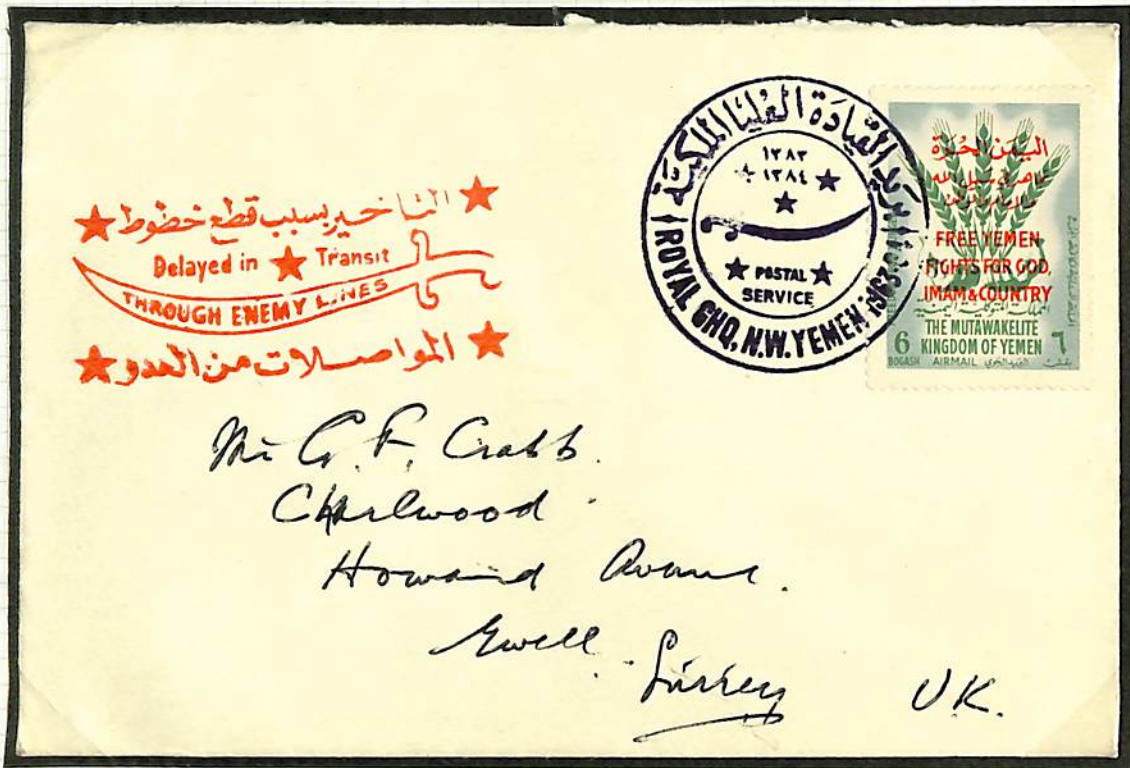 التأخير بسبب قطع خطوط
Delayed in Transit
THROUGH ENEMY LINES
المواصلات من العدو
بريد القيادة العليا الملكية
١٣٨٣
١٣٨٤
POSTAL
SERVICE
ROYAL GHQ, N.W. YEMEN, 1963
اليمن الحرة
FREE YEMEN
FIGHTS FOR GOD,
IMAM & COUNTRY
المملكة المتوكلية اليمنية
THE MUTAWAKELITE
KINGDOM OF YEMEN
6
BOGASH
٦
AIRMAIL
Mr G. F. Crabb.
Charlwood
Howard Avenue.
Ewell.
Surrey
UK.